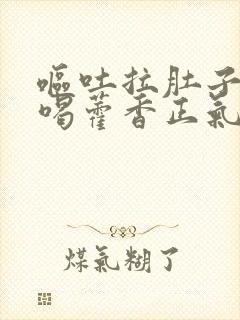 呕吐拉肚子
喝藿香正氣
煤氣糊了